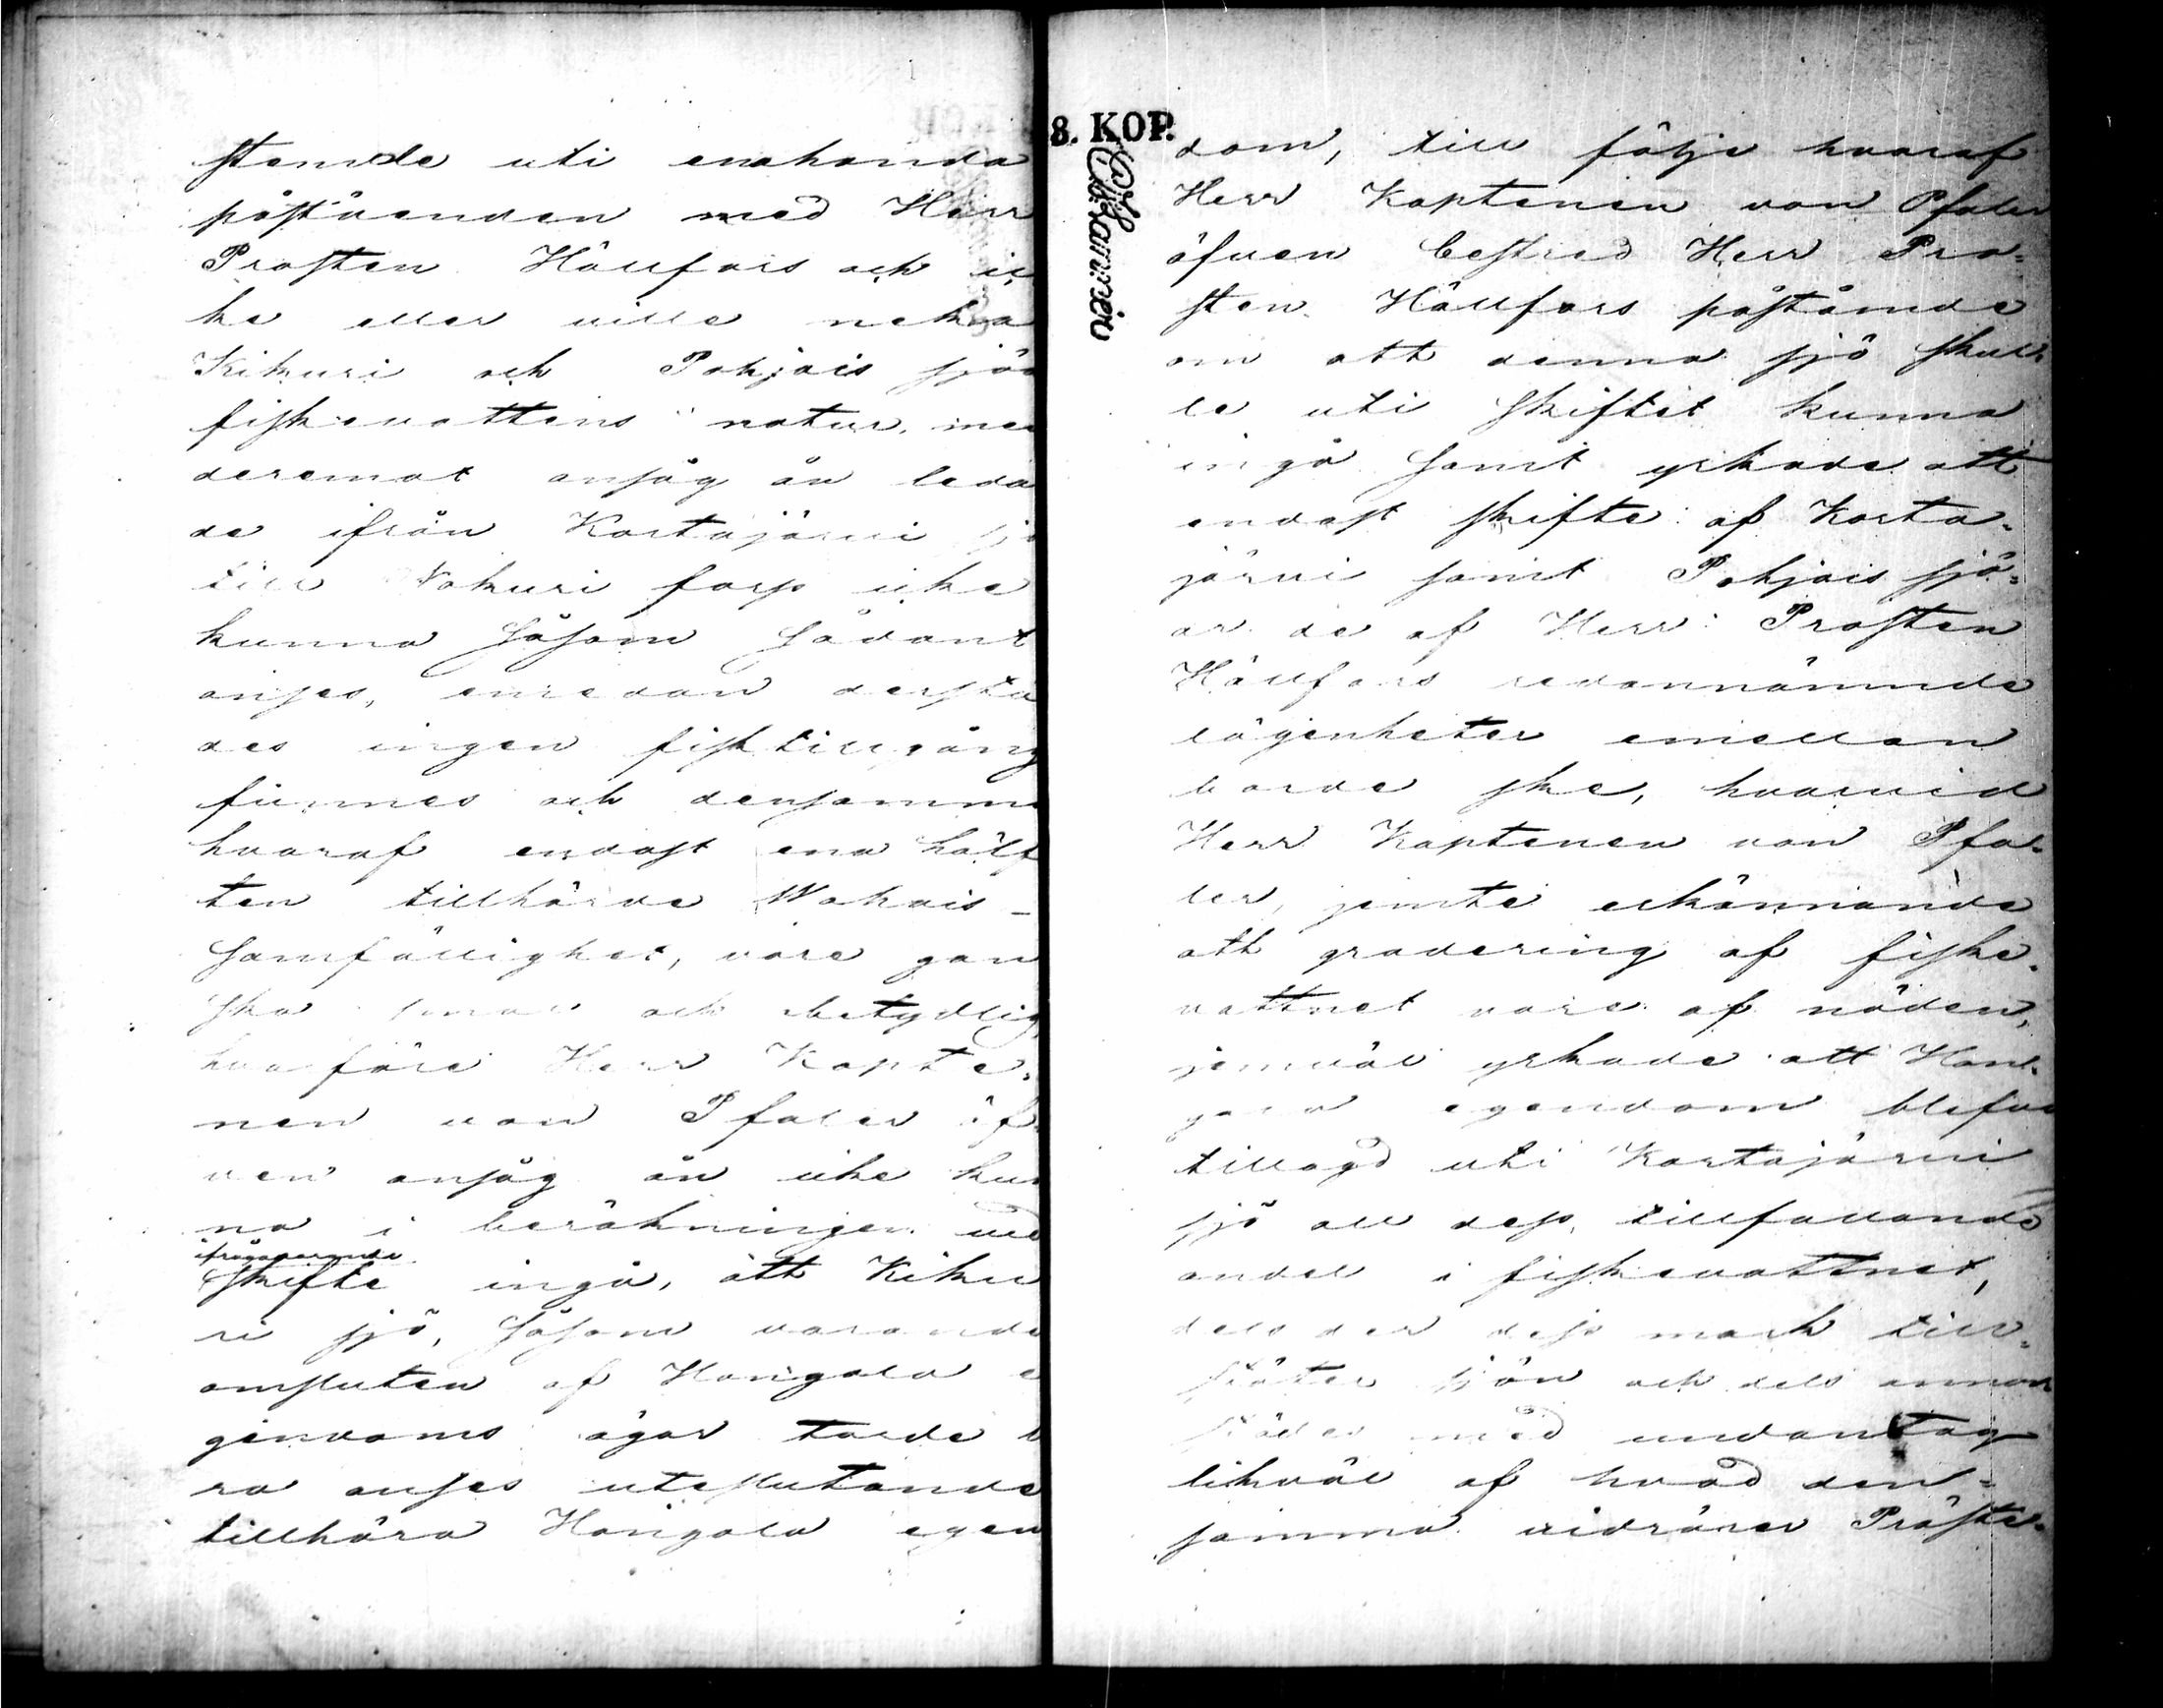 stemde uti enahanda
påståenden med Herr
Prosten Hällfors och ic
ke eller ville neka
Kikuri och Pohjois sjöa
fiskevattens natur, men
deremot ansåg ån leda
de ifrån Kortajärvi sjö
till Wokuri fors icke
kunna såsom sådant
anses, emedan derstä
des ingen fisktillgång
funnes och densamma
hvaraf endast ena hälf
ten tillhörde Wohois-
samfällighet, vore gan
ska smal och obetydlig,
hvarföre Herr Kapte-
nen von Pfaler äf
ven ansåg ån icke kun
na i beräkningen vid
ifrågavarande
skifte ingå, att Kiku
ri sjö, såsom varande
omsluten af Hongola e
gendoms ägor torde b
ra anses uteslutande
tillhöra Hongola egen
8. KOP.
Charta Sigillata
dom, till följe hvaraf
Herr Kaptenen von Pfaler
äfven bestred Herr Pro-
sten Hällfors påstående
om att denna sjö skul-
le uti skiftet kunna
ingå samt yrkade att
endast skifte af Korta-
järvi samt Pohjois sjö-
ar de af Herr Prosten
Hällfors redannämnde
lägenheter emellan
borde ske, hvarvid
Herr Kaptenen von Pfa-
ler, jemte erkännande
att gradering af fiske-
vattnet vore af nöden,
jemväl yrkade att Hon-
gola egendom blefve
tillagd uti Kortajärvi
sjö all dess tillfallande
andel i fiskevattnet,
dels der dess mark till-
stöter sjön och dels annor
städes med undantag
likväl af hvad den-
samma vidrörer Präste-